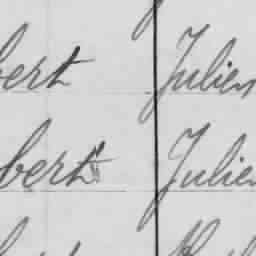 bert Julien
bert Julien